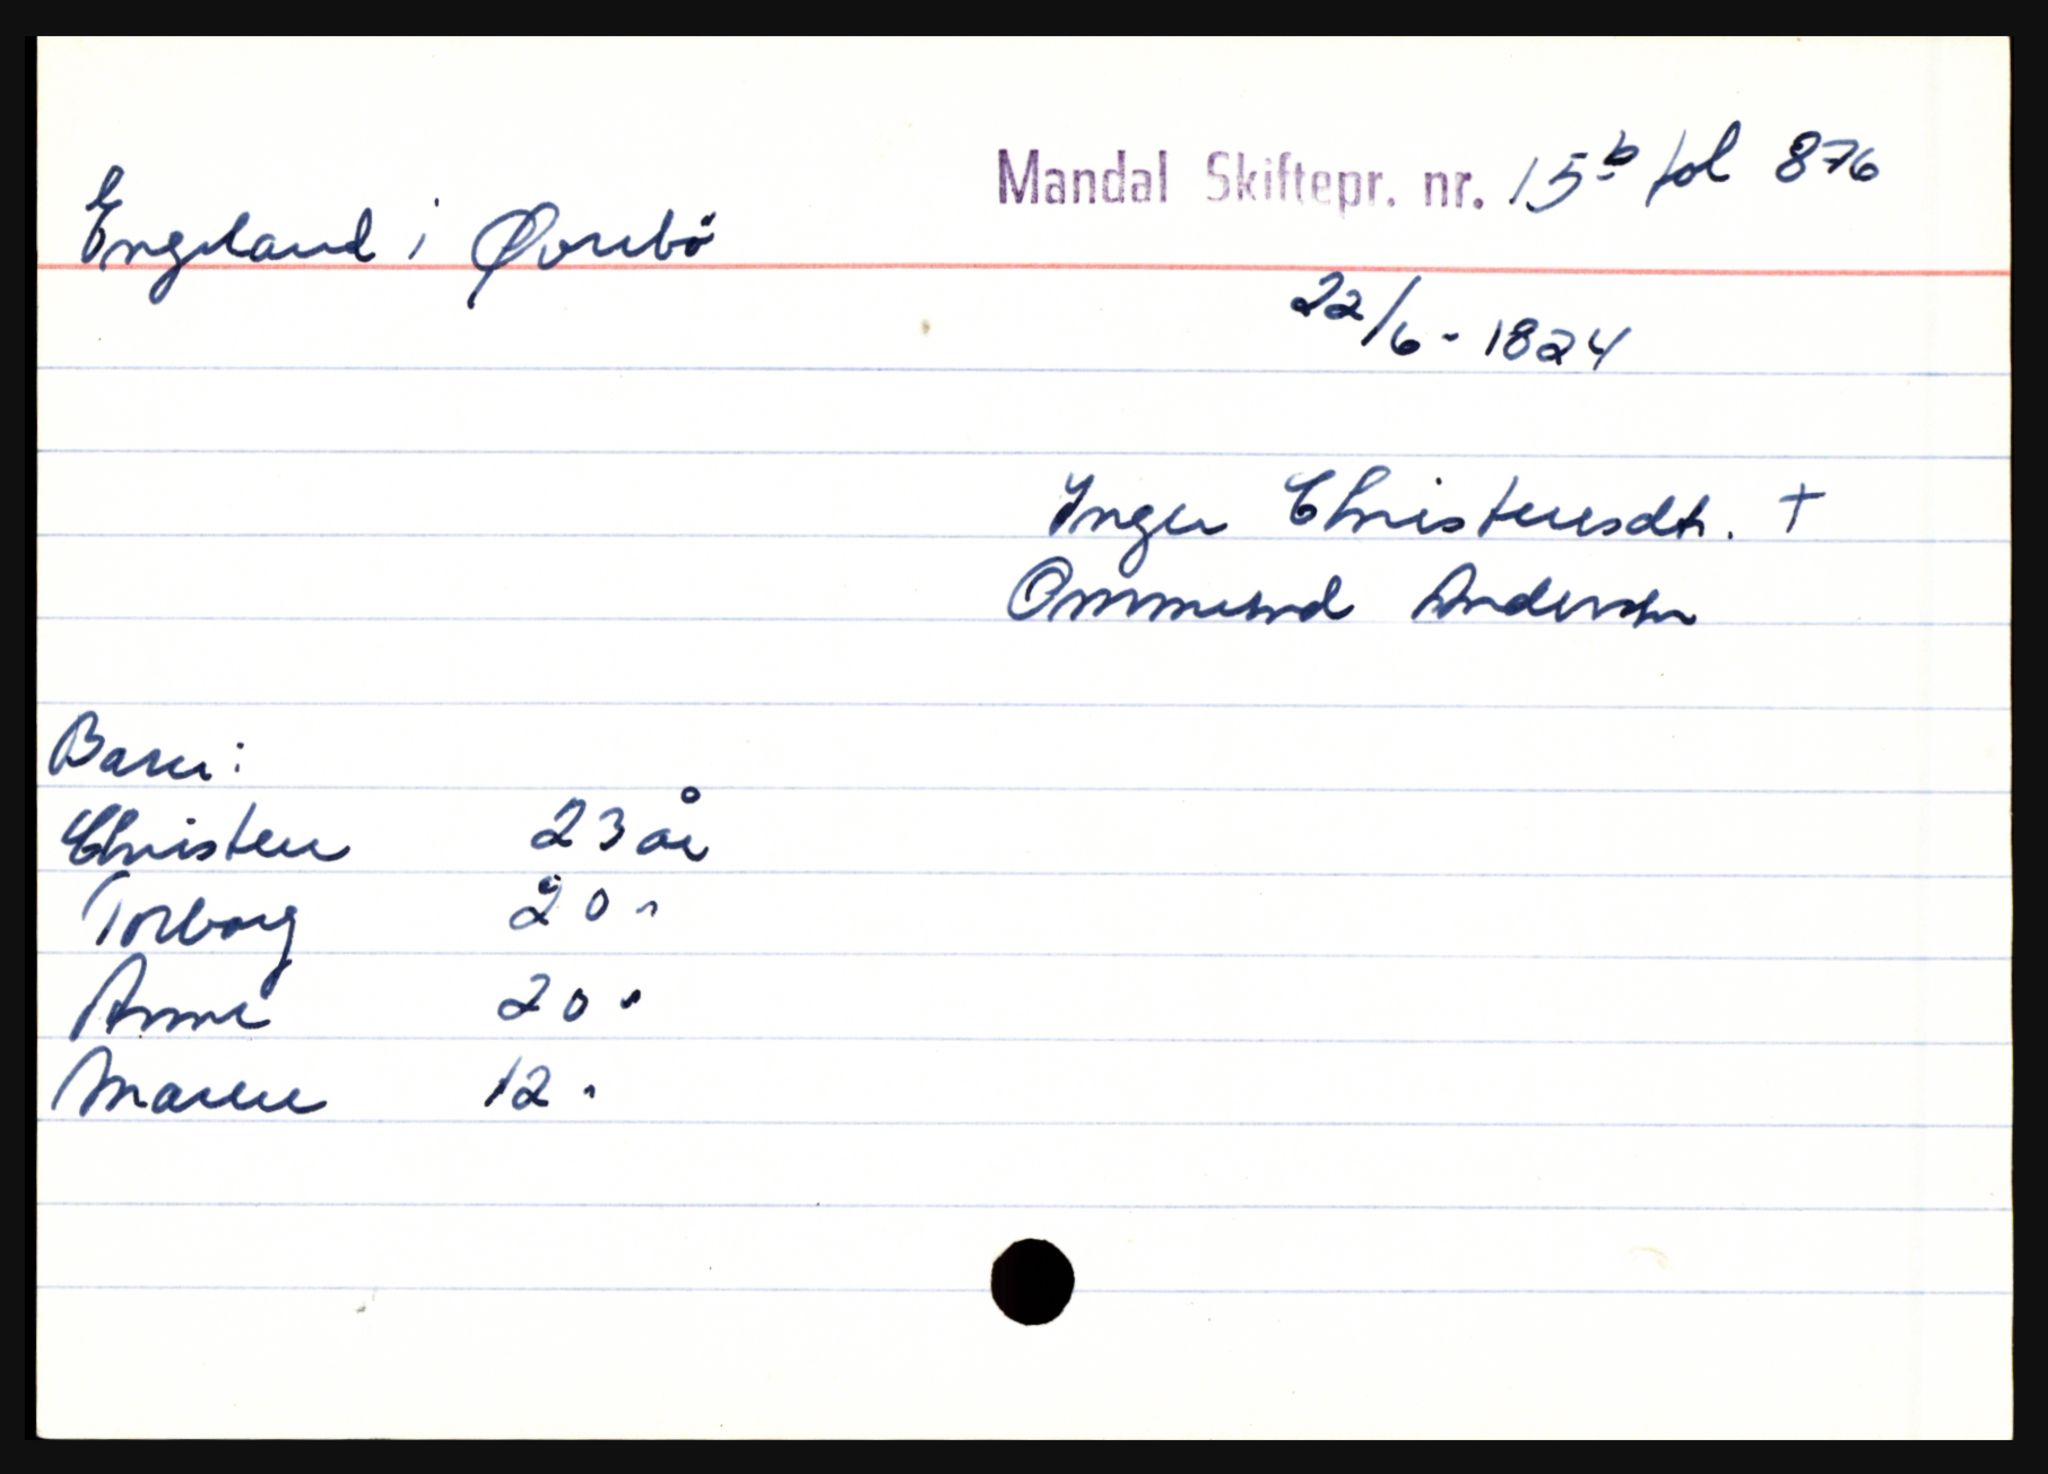 Mandal Skiftepr. nr. 15b fol 876
Engeland i Øvrebö
22/6 - 1824
Inger Christensdtr. +
Ommund Andersen
Barn:
Christen 23 år
Torborg 20 "
Anne 20 "
Maren 12 "